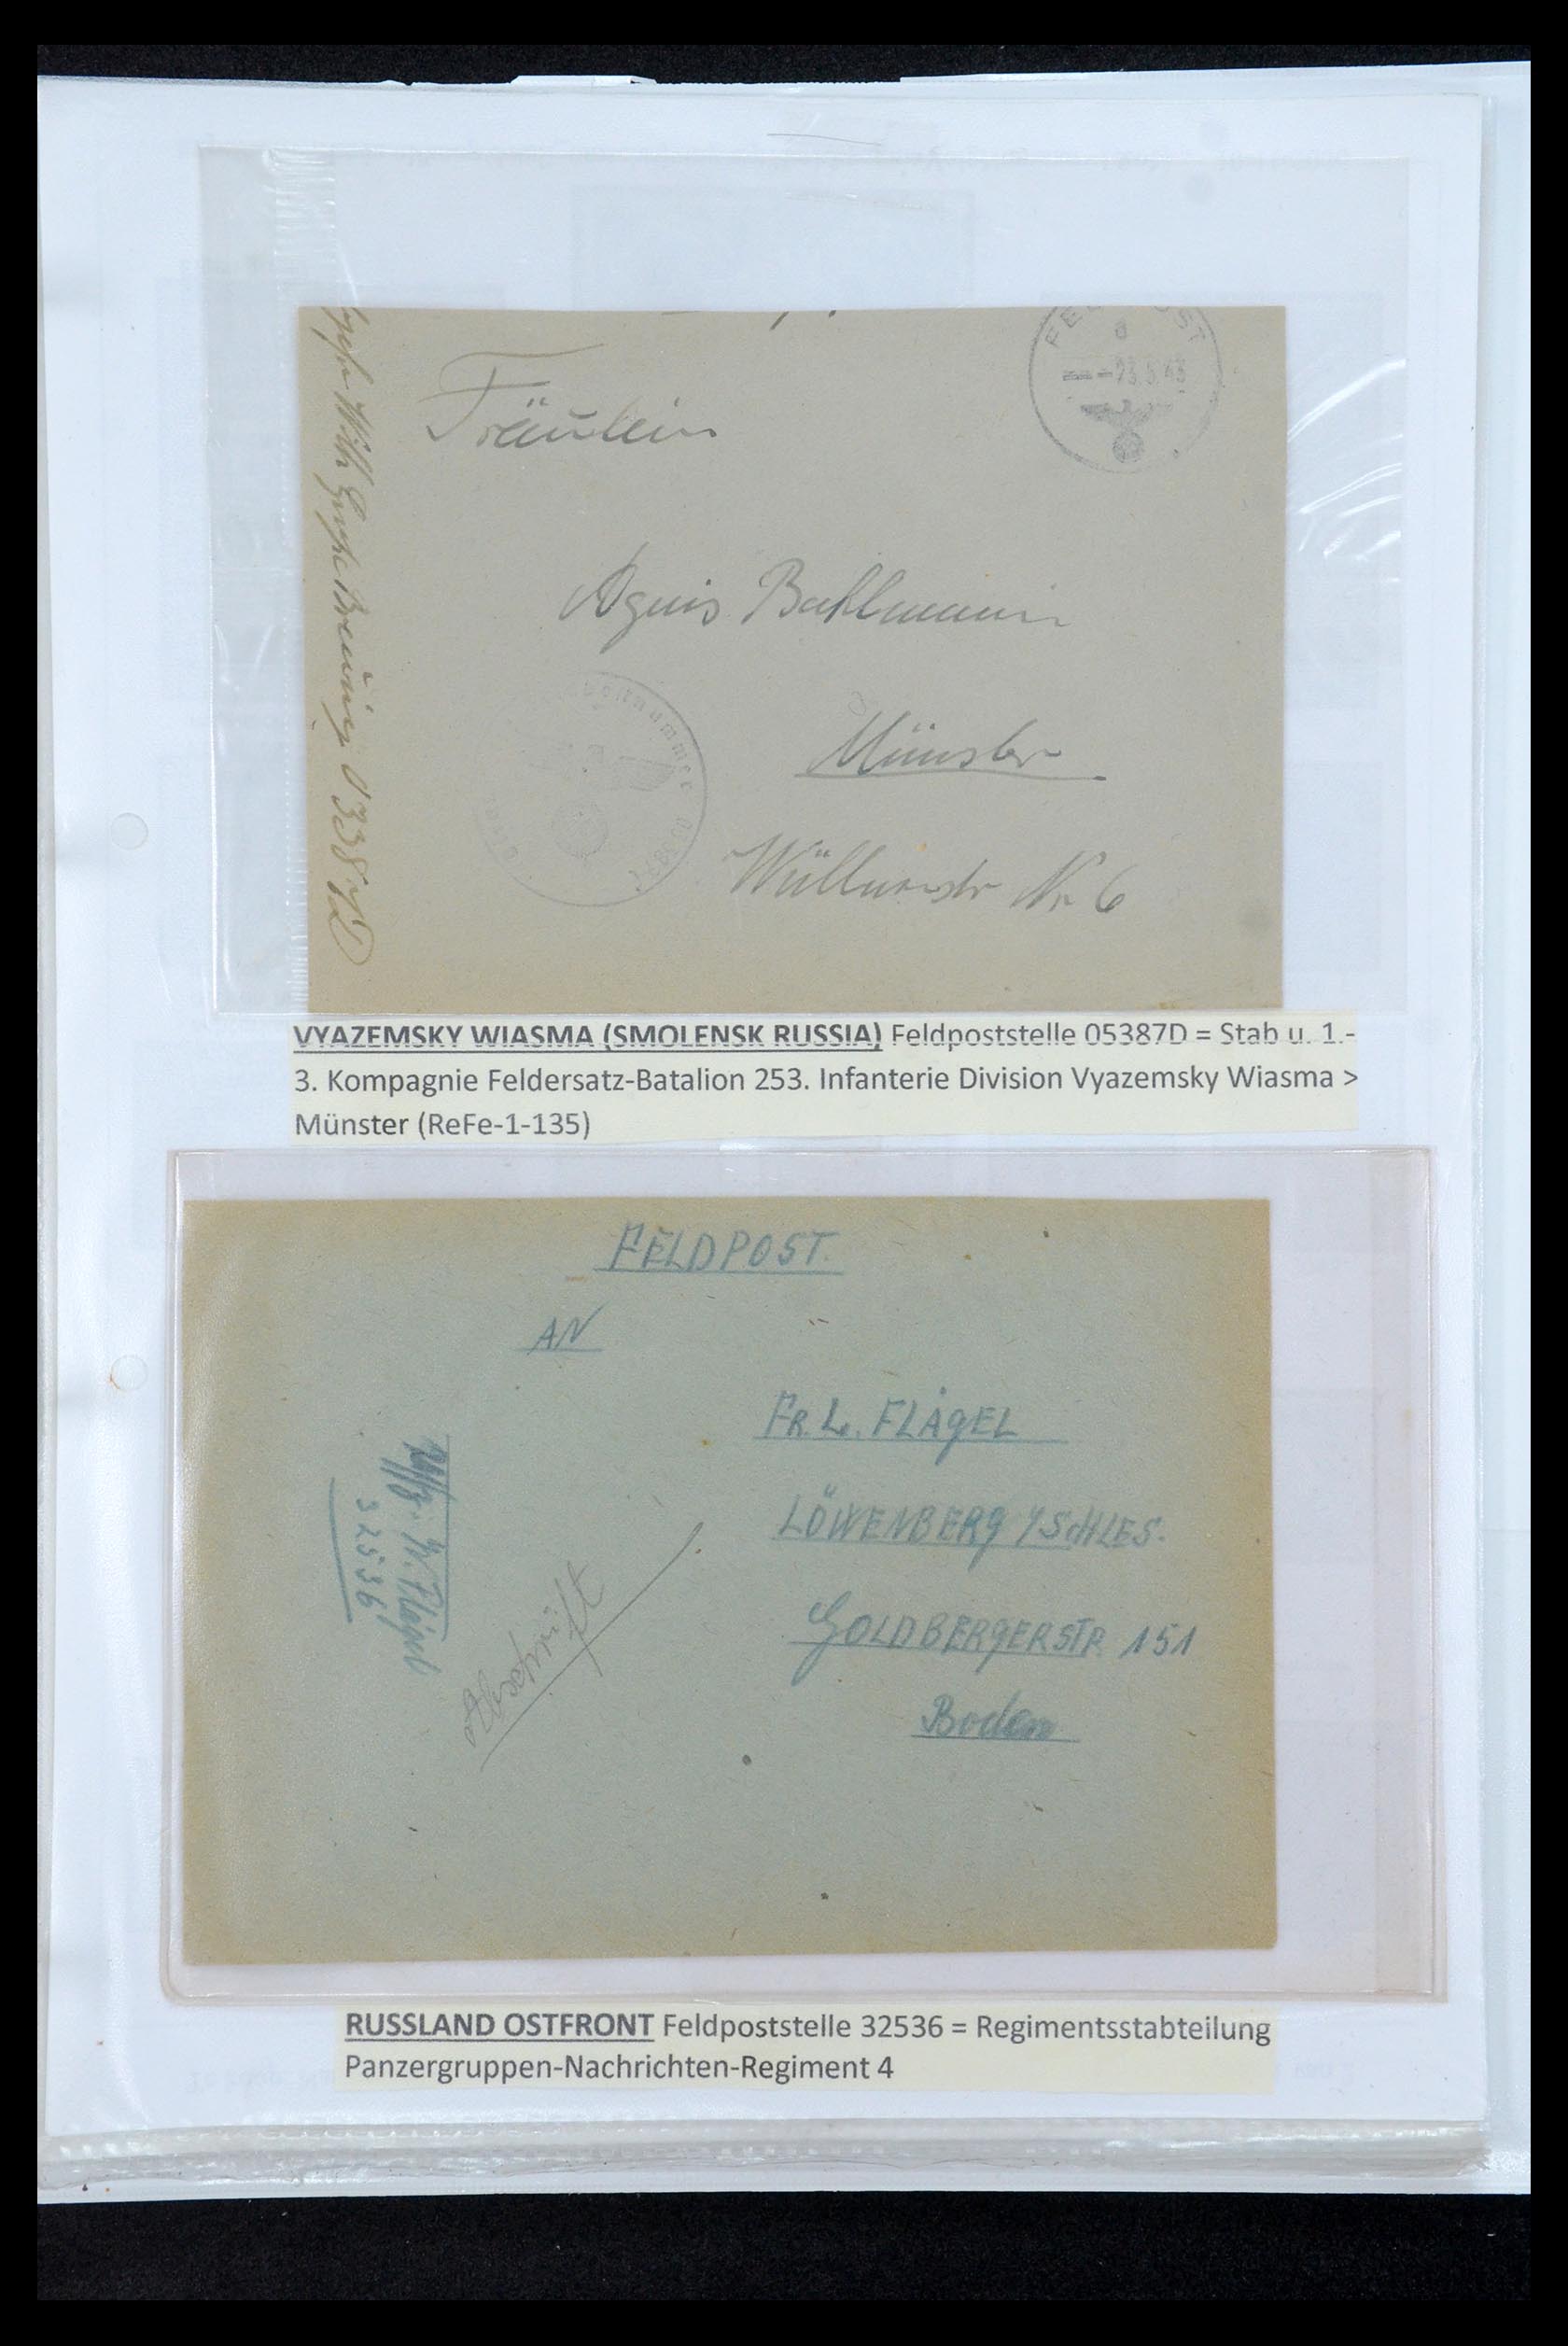 23.5.43
Fräulein
Agnis Bahlmann
Münster
Wüllnerstr Nr 6
VYAZEMSKY WIASMA (SMOLENSK RUSSIA) Feldpoststelle 05387D = Stab u. 1.-
3. Kompagnie Feldersatz-Batalion 253. Infanterie Division Vyazemsky Wiasma >
Münster (ReFe-1-135)
FELDPOST
AN
FR. L. FLÄGEL
LÖWENBERG / SCHLES.
GOLDBERGERSTR. 151
Boden
Uffz. W. Flägel
32536
Abschrift
RUSSLAND OSTFRONT Feldpoststelle 32536 = Regimentsstabteilung
Panzergruppen-Nachrichten-Regiment 4